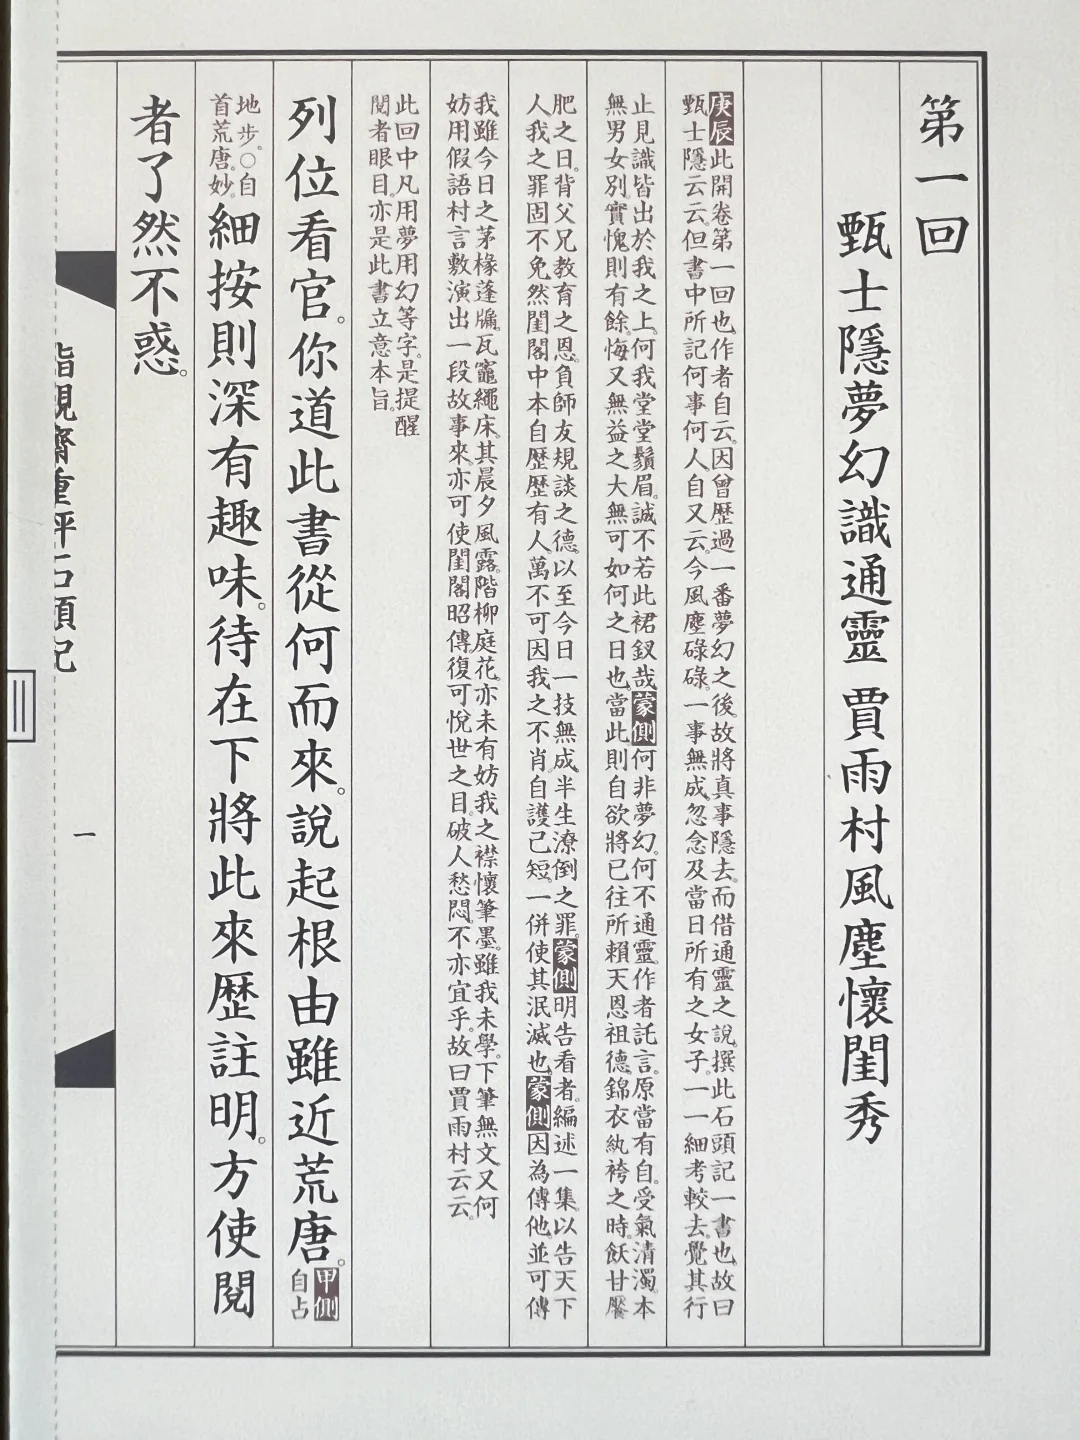 第一回
甄士隱夢幻識通靈 賈雨村風塵懷閨秀
庚辰此開卷第一回也。作者自云。因曾歷過一番夢幻之後。故將真事隱去。而借通靈之說。撰此石頭記一書也。故曰
甄士隱云云。但書中所記何事何人。自又云。今風塵碌碌。一事無成。忽念及當日所有之女子。一一細考較去。覺其行
止見識皆出於我之上。何我堂堂鬚眉。誠不若此裙釵哉。蒙側何非夢幻。何不通靈。作者託言。原當有自。受氣清濁。本
無男女別。實愧則有餘。悔又無益之大無可如何之日也。當此則自欲將已往所賴天恩祖德。錦衣紈袴之時。飫甘饜
肥之日。背父兄教育之恩。負師友規談之德。以至今日一技無成。半生潦倒之罪。蒙側明告看者。編述一集。以告天下
人。我之罪固不免。然閨閣中本自歷歷有人。萬不可因我之不肖。自護己短。一併使其泯滅也。蒙側因為傳他。並可傳
我雖今日之茅椽蓬牖。瓦竈繩床。其晨夕風露。階柳庭花。亦未有妨我之襟懷筆墨。雖我未學。下筆無文。又何
妨用假語村言。敷演出一段故事來。亦可使閨閣昭傳。復可悅世之目。破人愁悶。不亦宜乎。故曰賈雨村云云。
此回中凡用夢用幻等字。是提醒
閱者眼目。亦是此書立意本旨。
列位看官。你道此書從何而來。說起根由雖近荒唐。甲側
自占
地步。○自
首荒唐。妙。
細按則深有趣味。待在下將此來歷註明。方使閱
者了然不惑。
脂硯齋重評石頭記
一